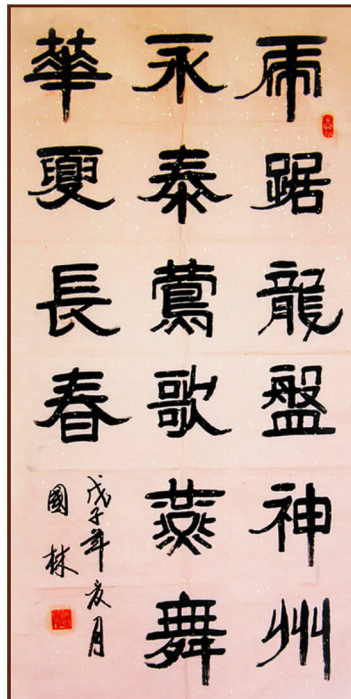 虎踞龍盤神州
永泰鶯歌燕舞
華夏長春
戊子年亥月
國林